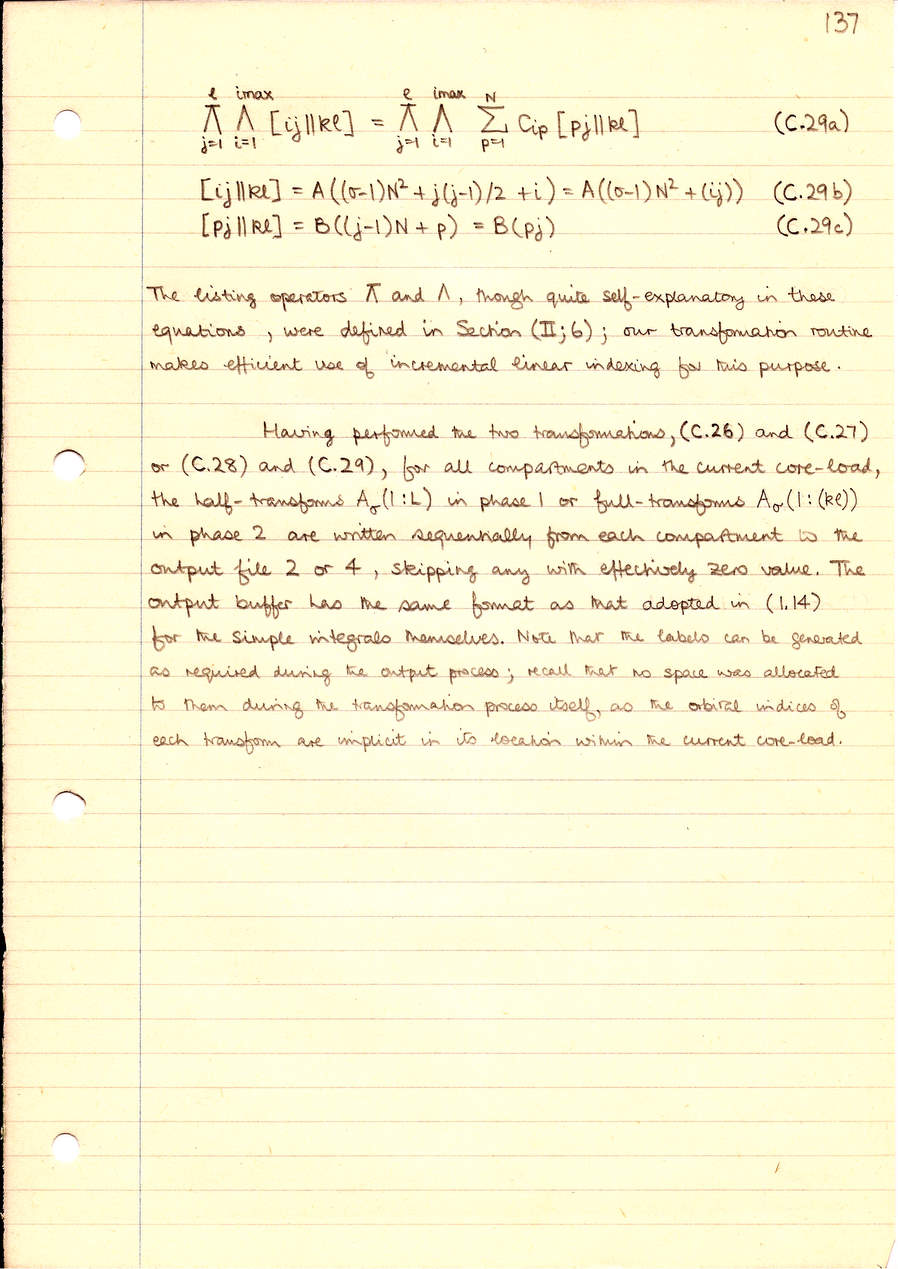 137
ℓ imax ℓ imax N
⊼ Λ [ij||kℓ] = ⊼ Λ Σ Cip [pj||kℓ] (C.29a)
j=1 i=1 j=1 i=1 p=1
[ij||kℓ] = A((σ-1)N² + j(j-1)/2 + i) = A((σ-1)N² + (ij)) (C.29b)
[pj||kℓ] = B((j-1)N + p) = B(pj) (C.29c)
The listing operators ⊼ and Λ, though quite self-explanatory in these
equations, were defined in Section (II;6); our transformation routine
makes efficient use of incremental linear indexing for this purpose.
Having performed the two transformations, (C.26) and (C.27)
or (C.28) and (C.29), for all compartments in the current core-load,
the half-transforms Aσ(1:L) in phase 1 or full-transforms Aσ(1:(kℓ))
in phase 2 are written sequentially from each compartment to the
output file 2 or 4, skipping any with effectively zero value. The
output buffer has the same format as that adopted in (1.14)
for the simple integrals themselves. Note that the labels can be generated
as required during the output process; recall that no space was allocated
to them during the transformation process itself, as the orbital indices of
each transform are implicit in its location within the current core-load.